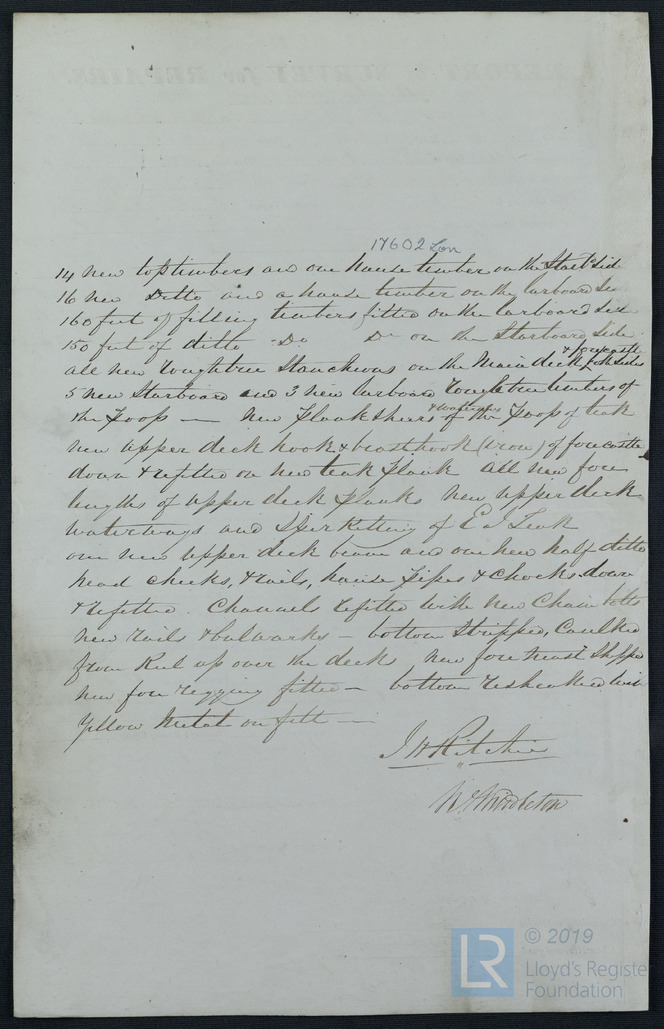 REPORT of SURVEY for REPAIRS
17602 Lon
14 new toptimbers and one hause timber on the Starbd Side
16 new Ditto and a hause timber on the larboard Side
160 feet of filling timbers fitted on the larboard side
150 feet of ditto - Do Do on the Starboard Side
& forecastle
all new Roughtree Stanchions on the Main deck both Sides
5 new Starboard and 3 new larboard Roughtree timbers of
the Poop — new Planksheers & waterways of the Poop of teak
new upper deck hook & breasthook (iron) of forecastle
down & refitted on new teak plank all new fore
lengths of upper deck planks new upper deck
waterways and Spirketting of E I Teak
one new upper deck beam and one new half ditto
head cheeks, & rails, hause pipes & chocks down
& refitted. Channels refitted with new Chain bolts
new rails & bulwarks — bottom Stripped, Caulked
from Keel up over the decks new foremast Shipped
new fore rigging fitted — bottom resheathed with
Yellow Metal on felt —
J H Ritchie
Wm Middleton
LR © 2019
Lloyd's Register
Foundation